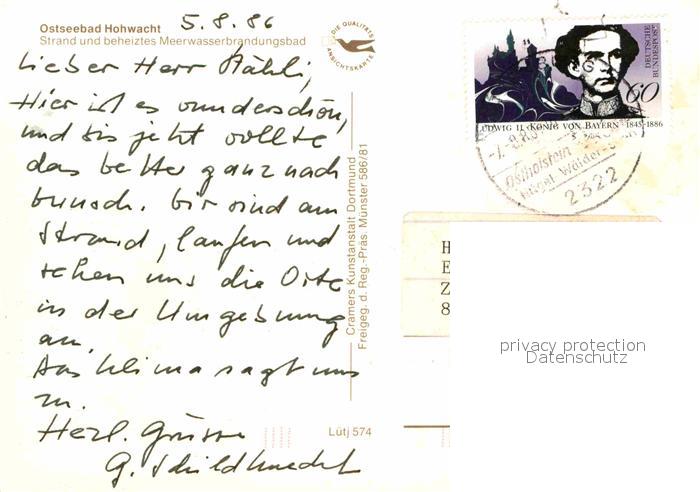 Ostseebad Hohwacht
Strand und beheiztes Meerwasserbrandungsbad
5.8.86
DIE QUALITÄTS
ANSICHTSKARTE
Lieber Herr
Hier ist es wunderschön,
und bis jetzt wollte
das Wetter ganz nach
Wunsch. Wir sind am
Strand, laufen und
sehen uns die Orte
in der Umgebung
an.
Das Klima sagt uns
zu.
Herzl. Grüsse
G. Schildknecht
Cramers Kunstanstalt Dortmund
Freigeg. d. Reg.-Präs. Münster 586/81
Lütj 574
DEUTSCHE
BUNDESPOST
60
LUDWIG II. KÖNIG VON BAYERN 1845-1886
Ostholstein
2322
H
E
Z
8
privacy protection
Datenschutz